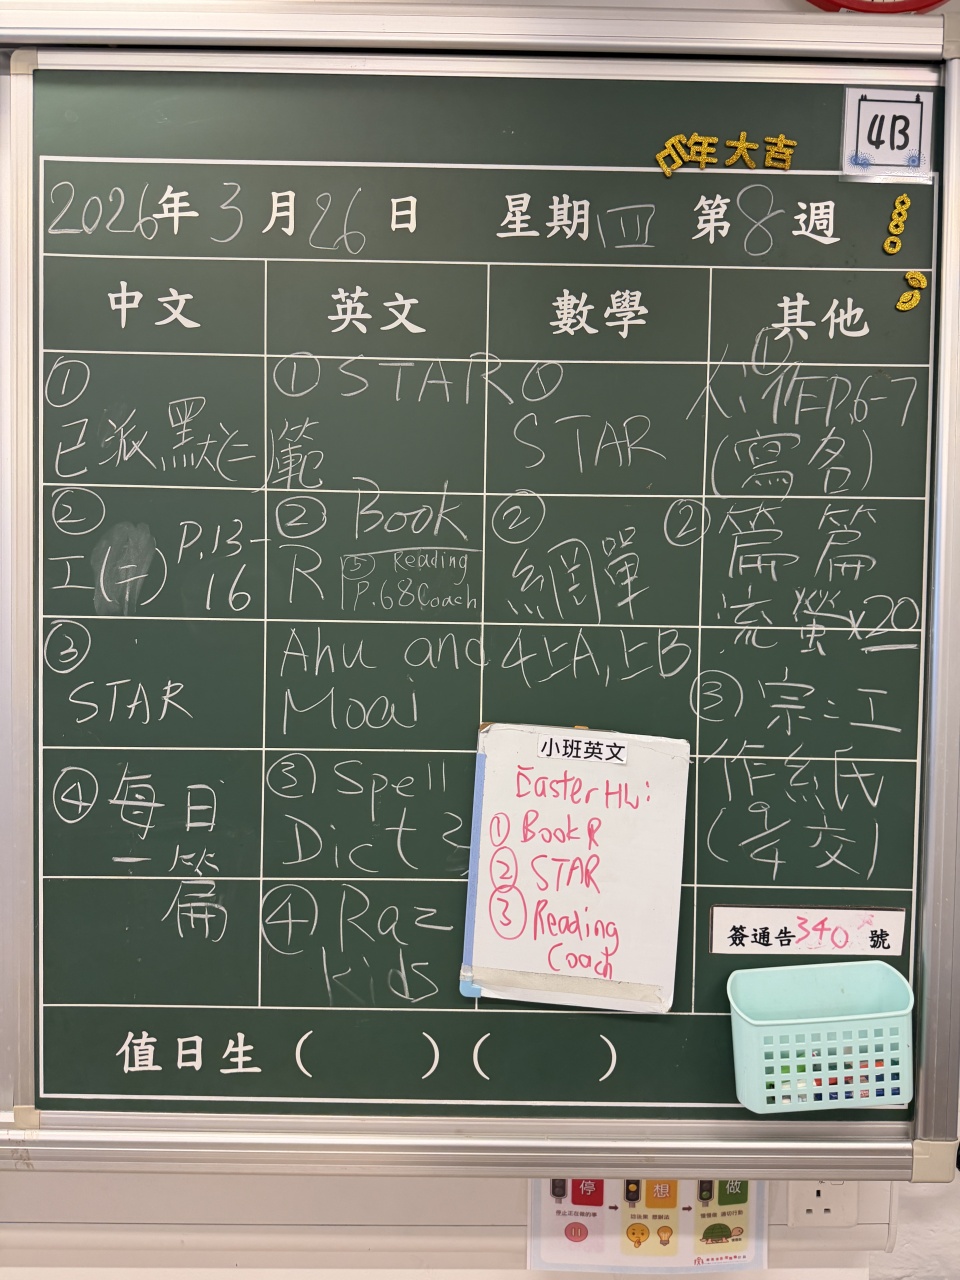 4B
年大吉
2026年3月26日 星期四 第8週
中文
英文
數學
其他
①
已派默(二)範
②
工(二) P.13-
16
③
STAR
④ 每日
一篇
① STAR
② Book
R
⑤ Reading
P.68 Coach
Ahu and
Moai
③ Spell
Dict 3
④ Raz
kids
①
STAR
②
網單
4上A,上B
①
作P.6-7
(寫名)
② 篇篇
流螢x20
③ 宗:工
作紙
(9/4交)
小班英文
Easter HW:
① Book R
② STAR
③ Reading
Coach
簽通告340號
值日生 ( ) ( )
停
想
做